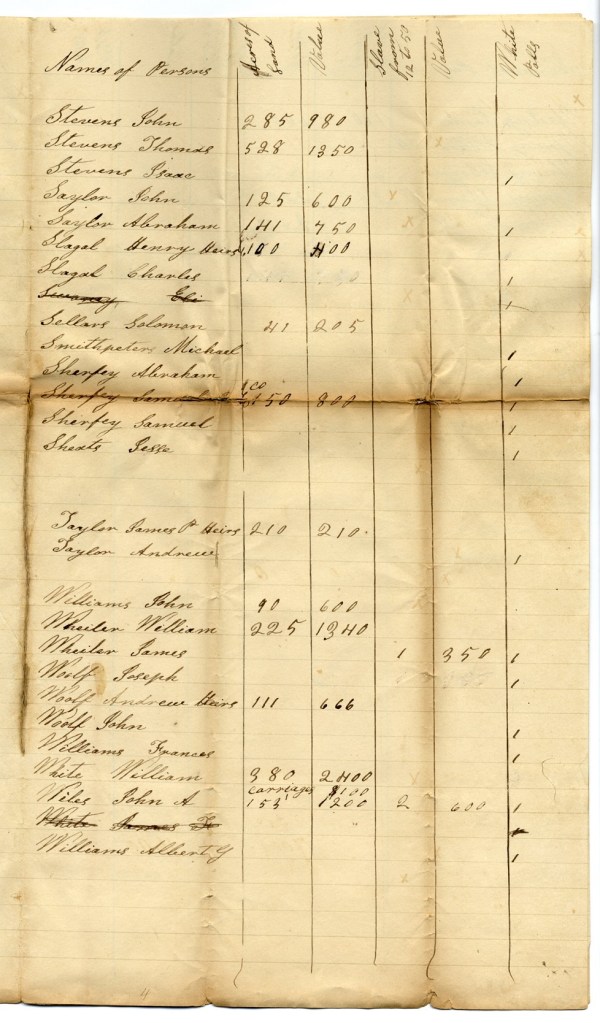 Names of Persons Acres of Land Value Slave from 12 to 50 Value White Polls
Stevens John 285 980
Stevens Thomas 528 1350
Stevens Isaac 1
Saylor John 125 600
Saylor Abraham 141 750 1
Slagal Henry Heirs 100 400
Slagal Charles 1
Swaney Eli 1
Sellars Solomon 41 205
Smithpeters Michael 1
Sherfey Abraham 1
Sherfey 150 800 1
Sherfey Samuel 1
Sheets Jesse 1
Taylor James P Heirs 210 210
Taylor Andrew 1
Williams John 90 600
Wheiler William 225 1340
Wheiler James 1 350 1
Woolf Joseph 1
Woolf Andrew Heirs 111 666
Woolf John 1
Williams Frances 1
White William 380 2400
carriages 1 $100
Wiles John A 153 1200 2 600 1
White James Jr
Williams Albert G 1